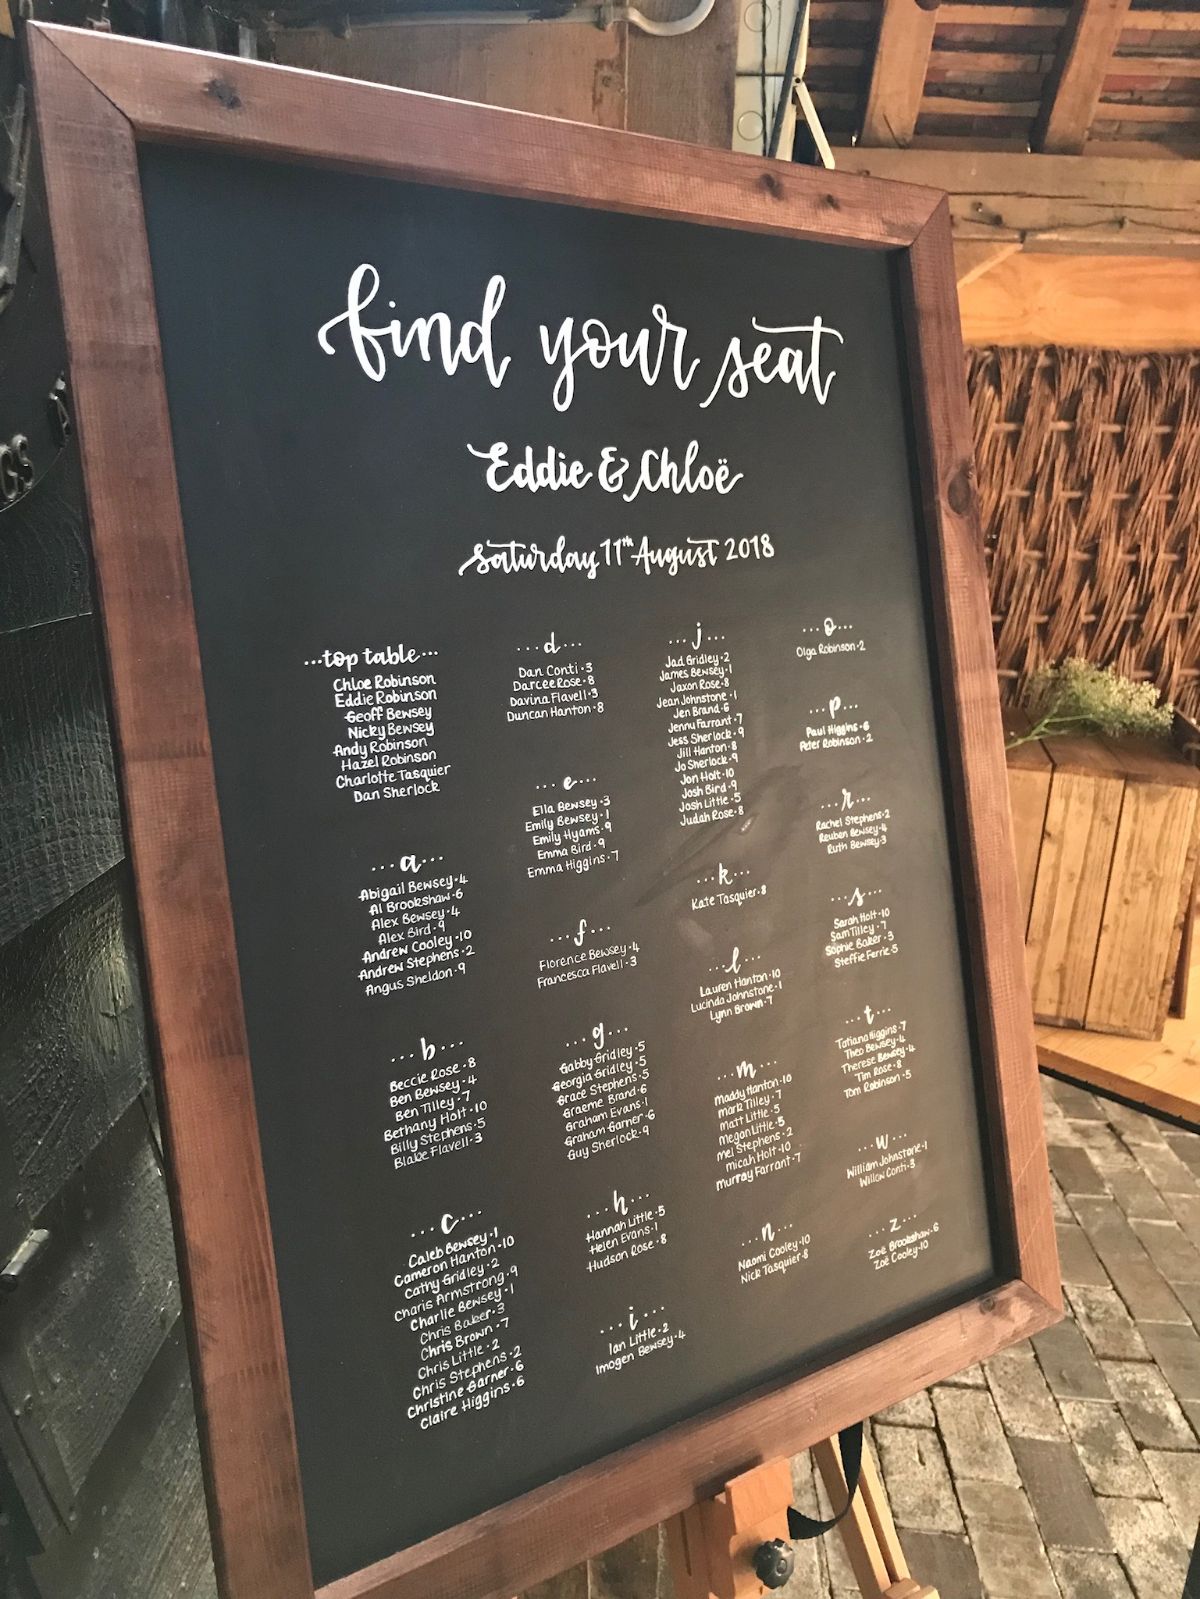 find your seat
Eddie & Chloë
saturday 11th August 2018
...top table...
Chloe Robinson
Eddie Robinson
Geoff Bewsey
Nicky Bewsey
Andy Robinson
Hazel Robinson
Charlotte Tasquier
Dan Sherlock
...a...
Abigail Bewsey·4
Al Brookshaw·6
Alex Bewsey·4
Alex Bird·9
Andrew Cooley·10
Andrew Stephens·2
Angus Sheldon·9
...b...
Beccie Rose·8
Ben Bewsey·4
Ben Tilley·7
Bethany Holt·10
Billy Stephens·5
Blake Flavell·3
...c...
Caleb Bewsey·1
Cameron Hanton·10
Cathy Gridley·2
Charis Armstrong·9
Charlie Bewsey·1
Chris Baker·3
Chris Brown·7
Chris Little·2
Chris Stephens·2
Christine Garner·6
Claire Higgins·6
...d...
Dan Conti·3
Darcee Rose·8
Davina Flavell·3
Duncan Hanton·8
...e...
Ella Bewsey·3
Emily Bewsey·1
Emily Hyams·9
Emma Bird·9
Emma Higgins·7
...f...
Florence Bewsey·4
Francesca Flavell·3
...g...
Gabby Gridley·5
Georgia Gridley·5
Grace Stephens·5
Graeme Brand·6
Graham Evans·1
Graham Garner·6
Guy Sherlock·9
...h...
Hannah Little·5
Helen Evans·1
Hudson Rose·8
...i...
Ian Little·2
Imogen Bewsey·4
...j...
Jad Gridley·2
James Bewsey·1
Jaxon Rose·8
Jean Johnstone·1
Jen Brand·6
Jenny Farrant·7
Jess Sherlock·9
Jill Hanton·8
Jo Sherlock·9
Jon Holt·10
Josh Bird·9
Josh Little·5
Judah Rose·8
...k...
Kate Tasquier·8
...l...
Lauren Hanton·10
Lucinda Johnstone·1
Lynn Brown·7
...m...
Maddy Hanton·10
Mark Tilley·7
Matt Little·5
Megan Little·5
Mel Stephens·2
Micah Holt·10
Murray Farrant·7
...n...
Naomi Cooley·10
Nick Tasquier·8
...o...
Olga Robinson·2
...p...
Paul Higgins·6
Peter Robinson·2
...r...
Rachel Stephens·2
Reuben Bewsey·4
Ruth Bewsey·3
...s...
Sarah Holt·10
Sam Tilley·7
Sophie Baker·3
Steffie Ferrie·5
...t...
Tatiana Higgins·7
Theo Bewsey·4
Therese Bewsey·4
Tim Rose·8
Tom Robinson·5
...w...
William Johnstone·1
Willow Conti·3
...z...
Zoe Brookshaw·6
Zoe Cooley·10